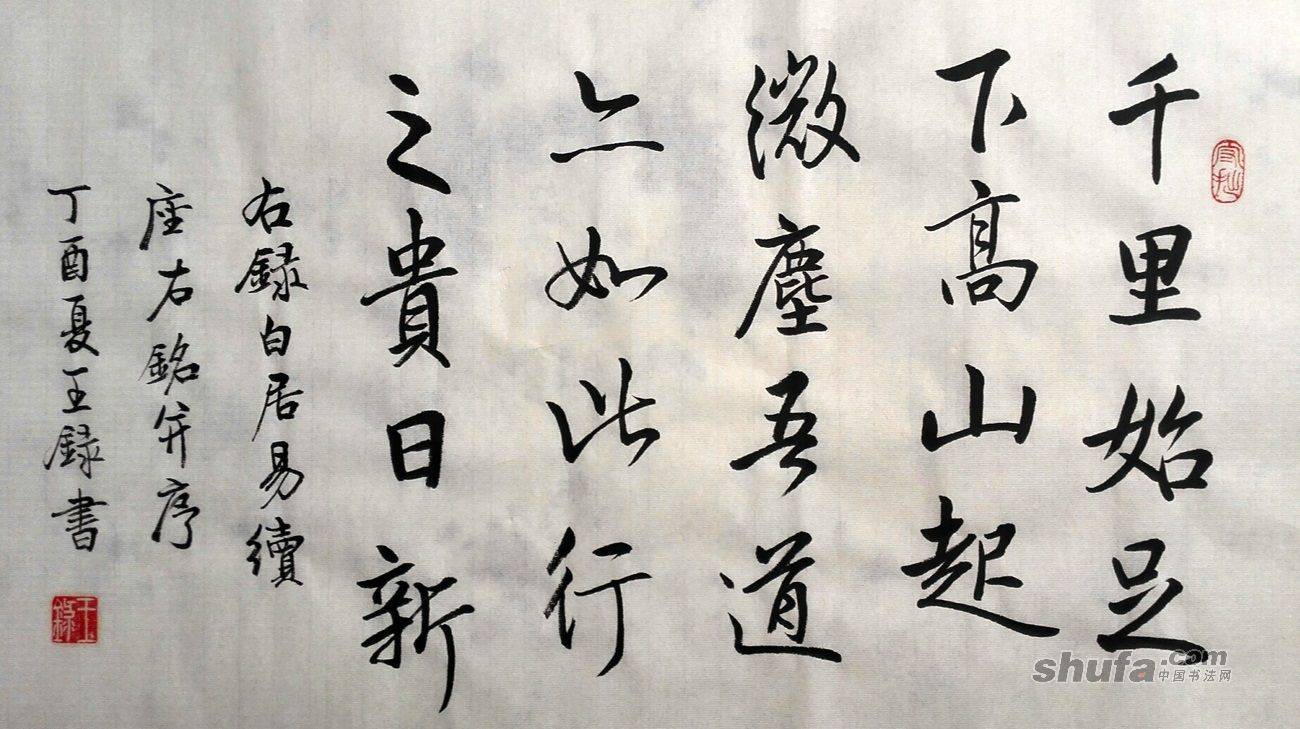 千里始足
下高山起
微塵吾道
亦如此行
之貴日新
右録白居易續
座右銘并序
丁酉夏王録書
王録
shufa.com
中国书法网